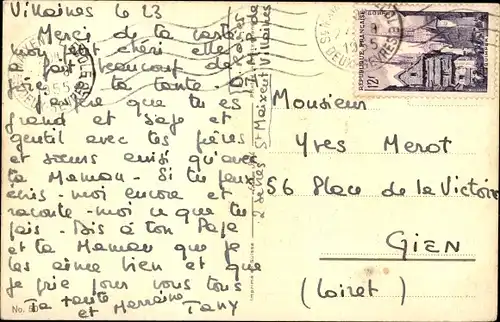 Villaines le 23
Merci de ta carte
mon petit chéri elle
a fait beaucoup de
joie à ta tante.
J'espère que tu es
grand et sage et
gentil avec tes frères
et soeurs ainsi qu'avec
ta Maman. Si tu peux
écris-moi encore et
raconte-moi ce que tu
fais. Dis à ton Papa
et ta Maman que je
les aime bien et que
je prie pour vous tous
Ta tante
et Marraine Tany
St Maixent
2 Sèvres
Monsieur
Yves Merot
56 Place de la Victoire
GIEN
(Loiret)
REPUBLIQUE FRANÇAISE
12F
No.